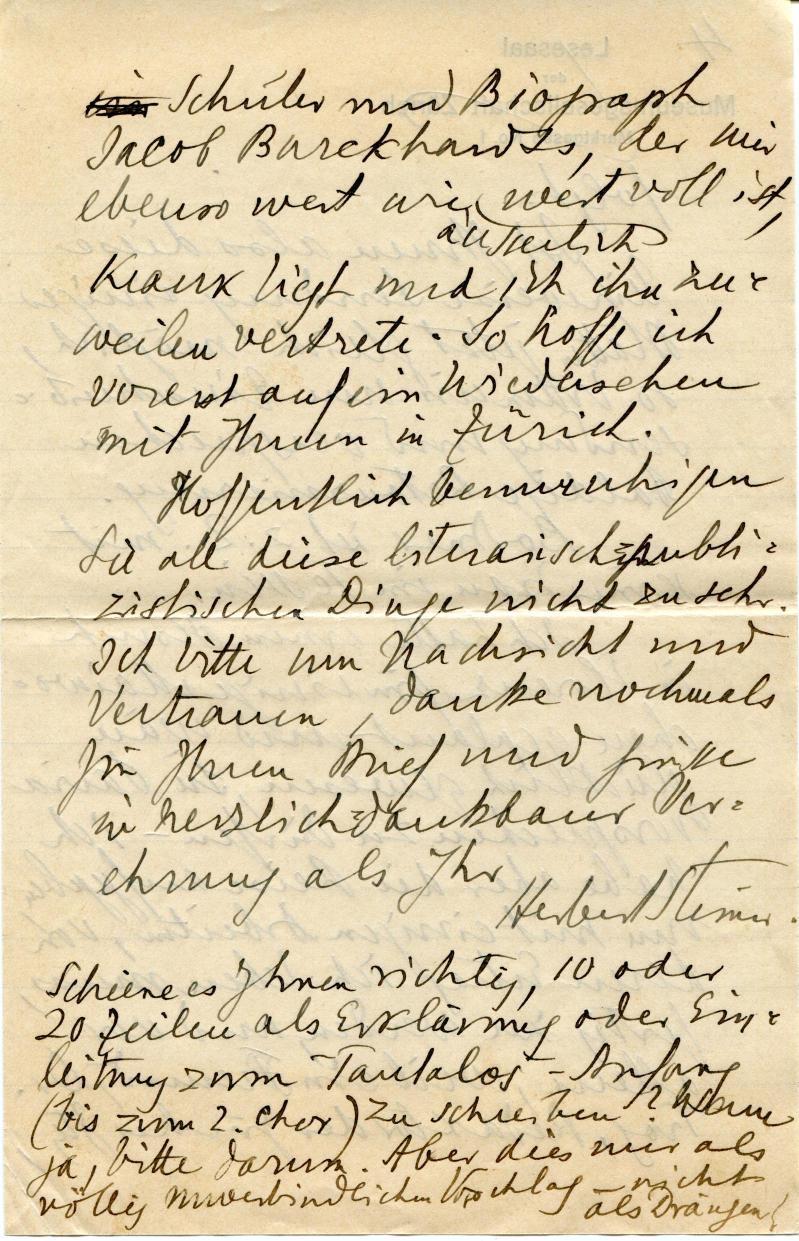 Schüler und Biograph
Jacob Burckhardts, der mir
ebenso wert wie wertvoll ist,
äusserlich
krank liegt und ich ihn zu=
weilen vertrete. So hoffe ich
vorerst auf ein Wiedersehen
mit Ihnen in Zürich.
Hoffentlich beunruhigen
Sie all diese literarisch=publi=
zistischen Dinge nicht zu sehr.
Ich bitte um Nachricht und
Vertrauen, danke nochmals
für Ihren Brief und grüsse
in herzlich=dankbarer Ver=
ehrung als Ihr
Herbert Steiner.
Schiene es Ihnen richtig, 10 oder
20 Zeilen als Erklärung oder Ein=
leitung zum Tantalos-Anfang
(bis zum 2. Chor) zu schreiben? Wenn
ja, bitte darum. Aber dies nur als
völlig unverbindlichen Vorschlag - nicht
als Drängen!